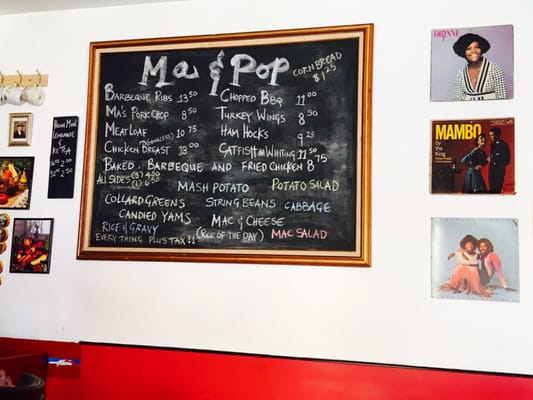 Ma & Pop
CORNBREAD
$1.25
BARBEQUE RIBS 13.50
CHOPPED BBQ 11.00
MA'S PORKCHOP 8.50
TURKEY WINGS 8.50
MEATLOAF 10.75
HAM HOCKS 9.25
(BONELESS)
CHICKEN BREAST 13.00
CATFISH OR WHITING 11.50
BAKED, BARBEQUE AND FRIED CHICKEN 8.75
ALL SIDES (S) 4.00
(L) 6.50
MASH POTATO
POTATO SALAD
COLLARD GREENS
STRING BEANS
CABBAGE
CANDIED YAMS
MAC & CHEESE
RICE & GRAVY
(RICE OF THE DAY)
MAC SALAD
EVERY THING PLUS TAX!!
HOUSE MADE
LEMONADE
&
ICE TEA
DIONNE
MAMBO
by
the
KING